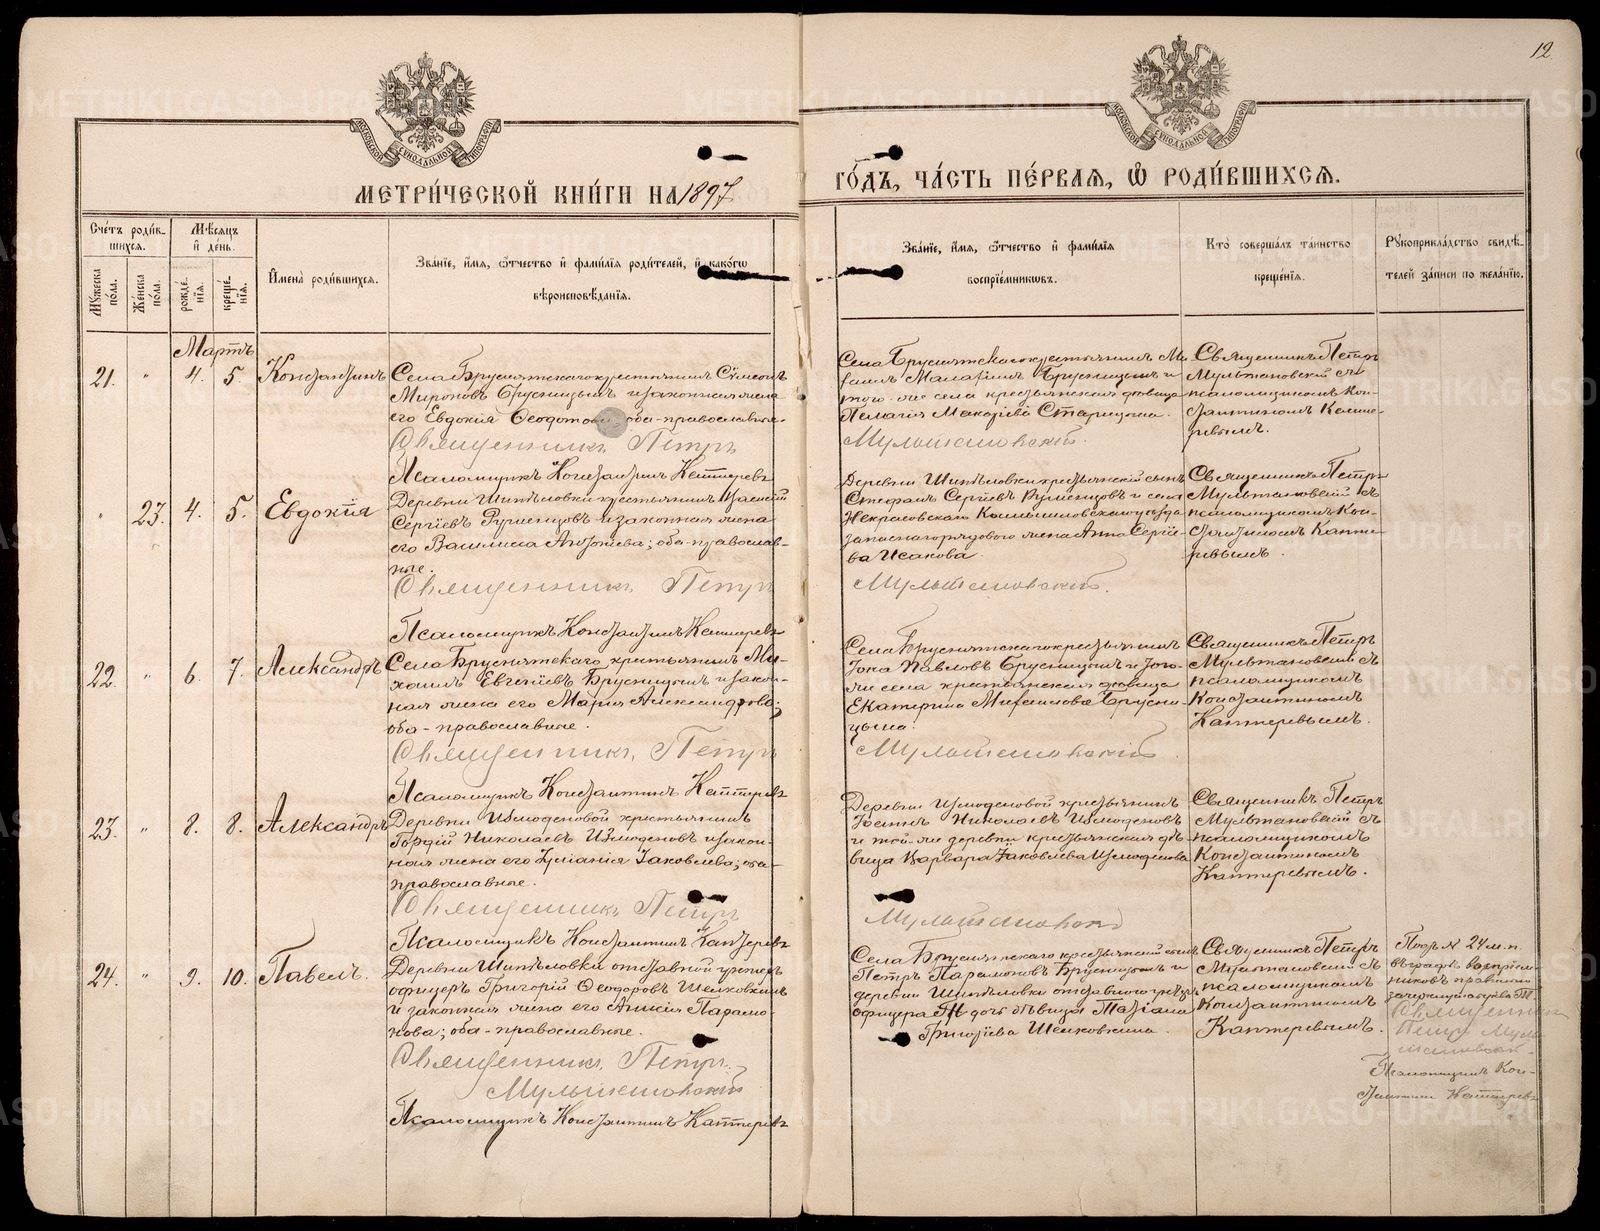 12
МОСКОВСКОЙ СѴНОДАЛЬНОЙ ТИПОГРАФІИ
МОСКОВСКОЙ СѴНОДАЛЬНОЙ ТИПОГРАФІИ
МЕТРИ́ЧЕСКОЙ КНИ́ГИ НА 1897
ГО́ДЪ, ЧА́СТЬ ПЕ́РВАЯ, Ѽ РОДИ́ВШИХСЯ.
Сче́тъ роди́в-
шихся.
Мѣ́сяцъ
и҆ день.
Мꙋжеска
по́ла.
Же́нска
по́ла.
рожде́-
нія.
креще́-
нія.
И҆мена̀ роди́вшихся.
Зва́ніе, и҆́мя, ѻ҆́тчество и҆ фами́лія роди́телей, и҆ како́гѡ
вѣроисповѣ́данія.
Зва́ніе, и҆́мя, ѻ҆́тчество и҆ фами́лія
воспріе́мниковъ.
Кто̀ соверша́лъ та́инство
креще́нія.
Рꙋкоприкла́дство свидѣ́-
телей за́писи по жела́нію.
Мартъ
21. " 4. 5. Константинъ
Села Бруснятскаго крестьянинъ Сѵмеонъ
Мироновъ Брусницынъ и законная жена
его Евдокія Ѳеодотова, оба православные.
Священникъ Петръ
Псаломщикъ Константинъ Каптеревъ
Села Бруснятскаго крестьянинъ Ми-
хаилъ Брусницынъ и
того-же села крестьянская дѣвица
Пелагія Макаріева Старицына.
Мультановскій.
Священникъ Петръ
Мультановскій съ
псаломщикомъ Кон-
стантиномъ Капте-
ревымъ.
" 23. 4. 5. Евдокія
Деревни Шипѣловки крестьянинъ
Сергіевъ Румянцовъ и законная жена
его Василиса; оба православ-
ные.
Священникъ Петръ
Псаломщикъ Константинъ Каптеревъ
Деревни Шипѣловки крестьянскій сынъ
Стефанъ Сергіевъ Румянцовъ и села
Некрасовскаго Камышловскаго уѣзда
запаснаго рядового жена Анна Сергіе-
ва Исакова.
Мультановскій.
Священникъ Петръ
Мультановскій съ
псаломщикомъ Кон-
стантиномъ Капте-
ревымъ.
22. " 6. 7. Александръ
Села Бруснятскаго крестьянинъ Ми-
хаилъ Евгеніевъ Брусницынъ и закон-
ная жена его Марія Александрова;
оба-православные.
Священникъ Петръ
Псаломщикъ Константинъ Каптеревъ
Села Бруснятскаго крестьянинъ
Іона Павловъ Брусницынъ и того-
же села крестьянская дѣвица
Екатерина Михаилова Брусни-
цына.
Мультановскій
Священникъ Петръ
Мультановскій съ
псаломщикомъ
Константиномъ
Каптеревымъ.
23. " 8. 8. Александръ
Деревни Измоденовой крестьянинъ
Гордій Николаевъ Измоденовъ и закон-
ная жена его Іуліанія Іаковлева; оба-
православные.
Священникъ Петръ
Псаломщикъ Константинъ Каптеревъ
Деревни Измоденовой крестьянинъ
Николаевъ Измоденовъ
и той-же деревни крестьянская дѣ-
вица Варвара Іаковлева Измоденова
Мультановскій
Священникъ Петръ
Мультановскій съ
псаломщикомъ
Константиномъ
Каптеревымъ.
24. " 9. 10. Павелъ.
Деревни Шипѣловки отставной унтеръ
офицеръ Григорій Ѳеодоровъ Шелковкинъ
и законная жена его Анисія Парамо-
нова; оба-православные.
Священникъ Петръ
Мультановскій
Псаломщикъ Константинъ Каптеревъ
Села Бруснятскаго крестьянскій сынъ
Петръ Парамоновъ Брусницынъ и
деревни Шипѣловки отставного унтеръ
офицера дочь дѣвица Татіана
Григоріева Шелковкина.
Священникъ Петръ
Мультановскій съ
псаломщикомъ
Константиномъ
Каптеревымъ.
Подъ № 24 м. п.
въ графѣ воспріем-
никовъ
Священникъ
Петръ Муль-
тановскій.
Псаломщикъ Кон-
стантинъ Каптеревъ
METRIKI.GASO-URAL.RU